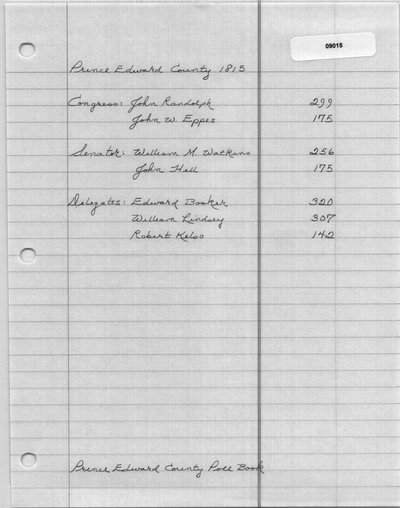 09015
Prince Edward County 1815
Congress: John Randolph 299
John W. Eppes 175
Senator: William M. Watkins 256
John Hill 175
Delegates: Edward Booker 320
William Lindsey 307
Robert Kelso 142
Prince Edward County Poll Book